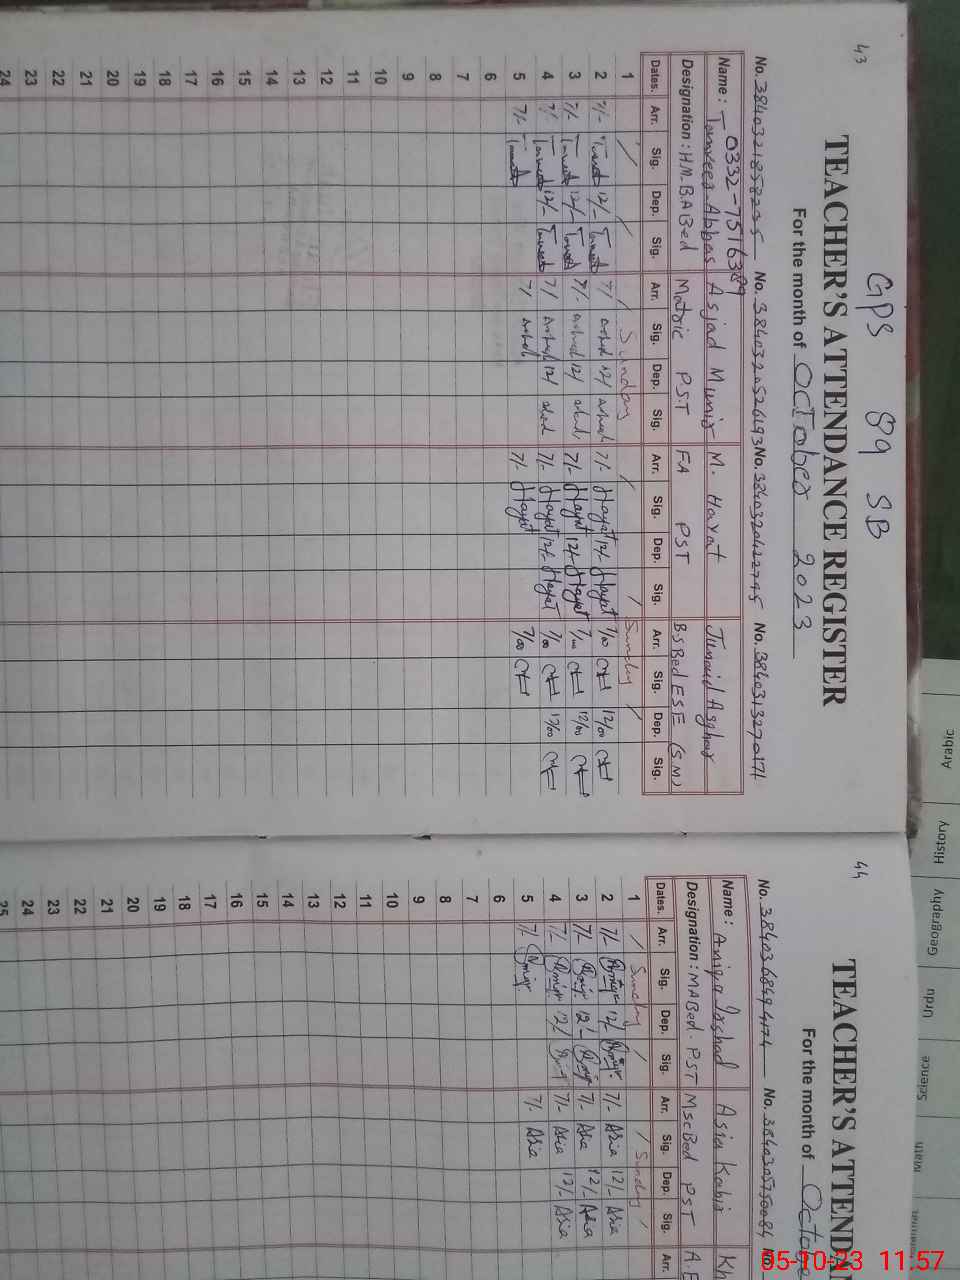 43
GPS 89 SB
TEACHER'S ATTENDANCE REGISTER
For the month of OcTober 2023
No. 3840321858235 No. 3840320526193 No. 3840320422745 No. 3840313270171
0332-7516389
Name: Tanveer Abbas Asjad Munir M. Hayat Junaid Asghar
Designation: H.M. B.A BEd Matric PST FA PST BS Bed ESE (S.M)
Dates. Arr. Sig. Dep. Sig. Arr. Sig. Dep. Sig. Arr. Sig. Dep. Sig. Arr. Sig. Dep. Sig.
1 Sunday Sunday
2 7/- 12/- 7/ 12/ 7/- Hayat 12/- Hayat 7/00 12/00
3 7/- 12/- 7/- 12/ 7/- Hayat 12/- Hayat 7/00 12/00
4 7/- 12/- 7/ 12/ 7/- Hayat 12/- Hayat 7/00 12/00
5 7/- 7/ 7/- Hayat 7/00
6
7
8
9
10
11
12
13
14
15
16
17
18
19
20
21
22
23
24
44
TEACHER'S ATTENDA
For the month of Octobe
No. 3840368494174 No. 3840305750084 No
Name: Aniqa Irshad Asia Kabir Kh
Designation: MA Bed. PST MSc Bed PST A.B
Dates. Arr. Sig. Dep. Sig. Arr. Sig. Dep. Sig. Arr.
1 Sunday Sunday
2 7/- 12/ 7/- Asia 12/- Asia
3 7/- 12/- 7/- Asia 12/- Asia
4 7/- 12/ 7/- Asia 12/- Asia
5 7/- 7/- Asia
6
7
8
9
10
11
12
13
14
15
16
17
18
19
20
21
22
23
24
25
Arabic
History
Geography
Urdu
Science
Math
05-10-23 11:57